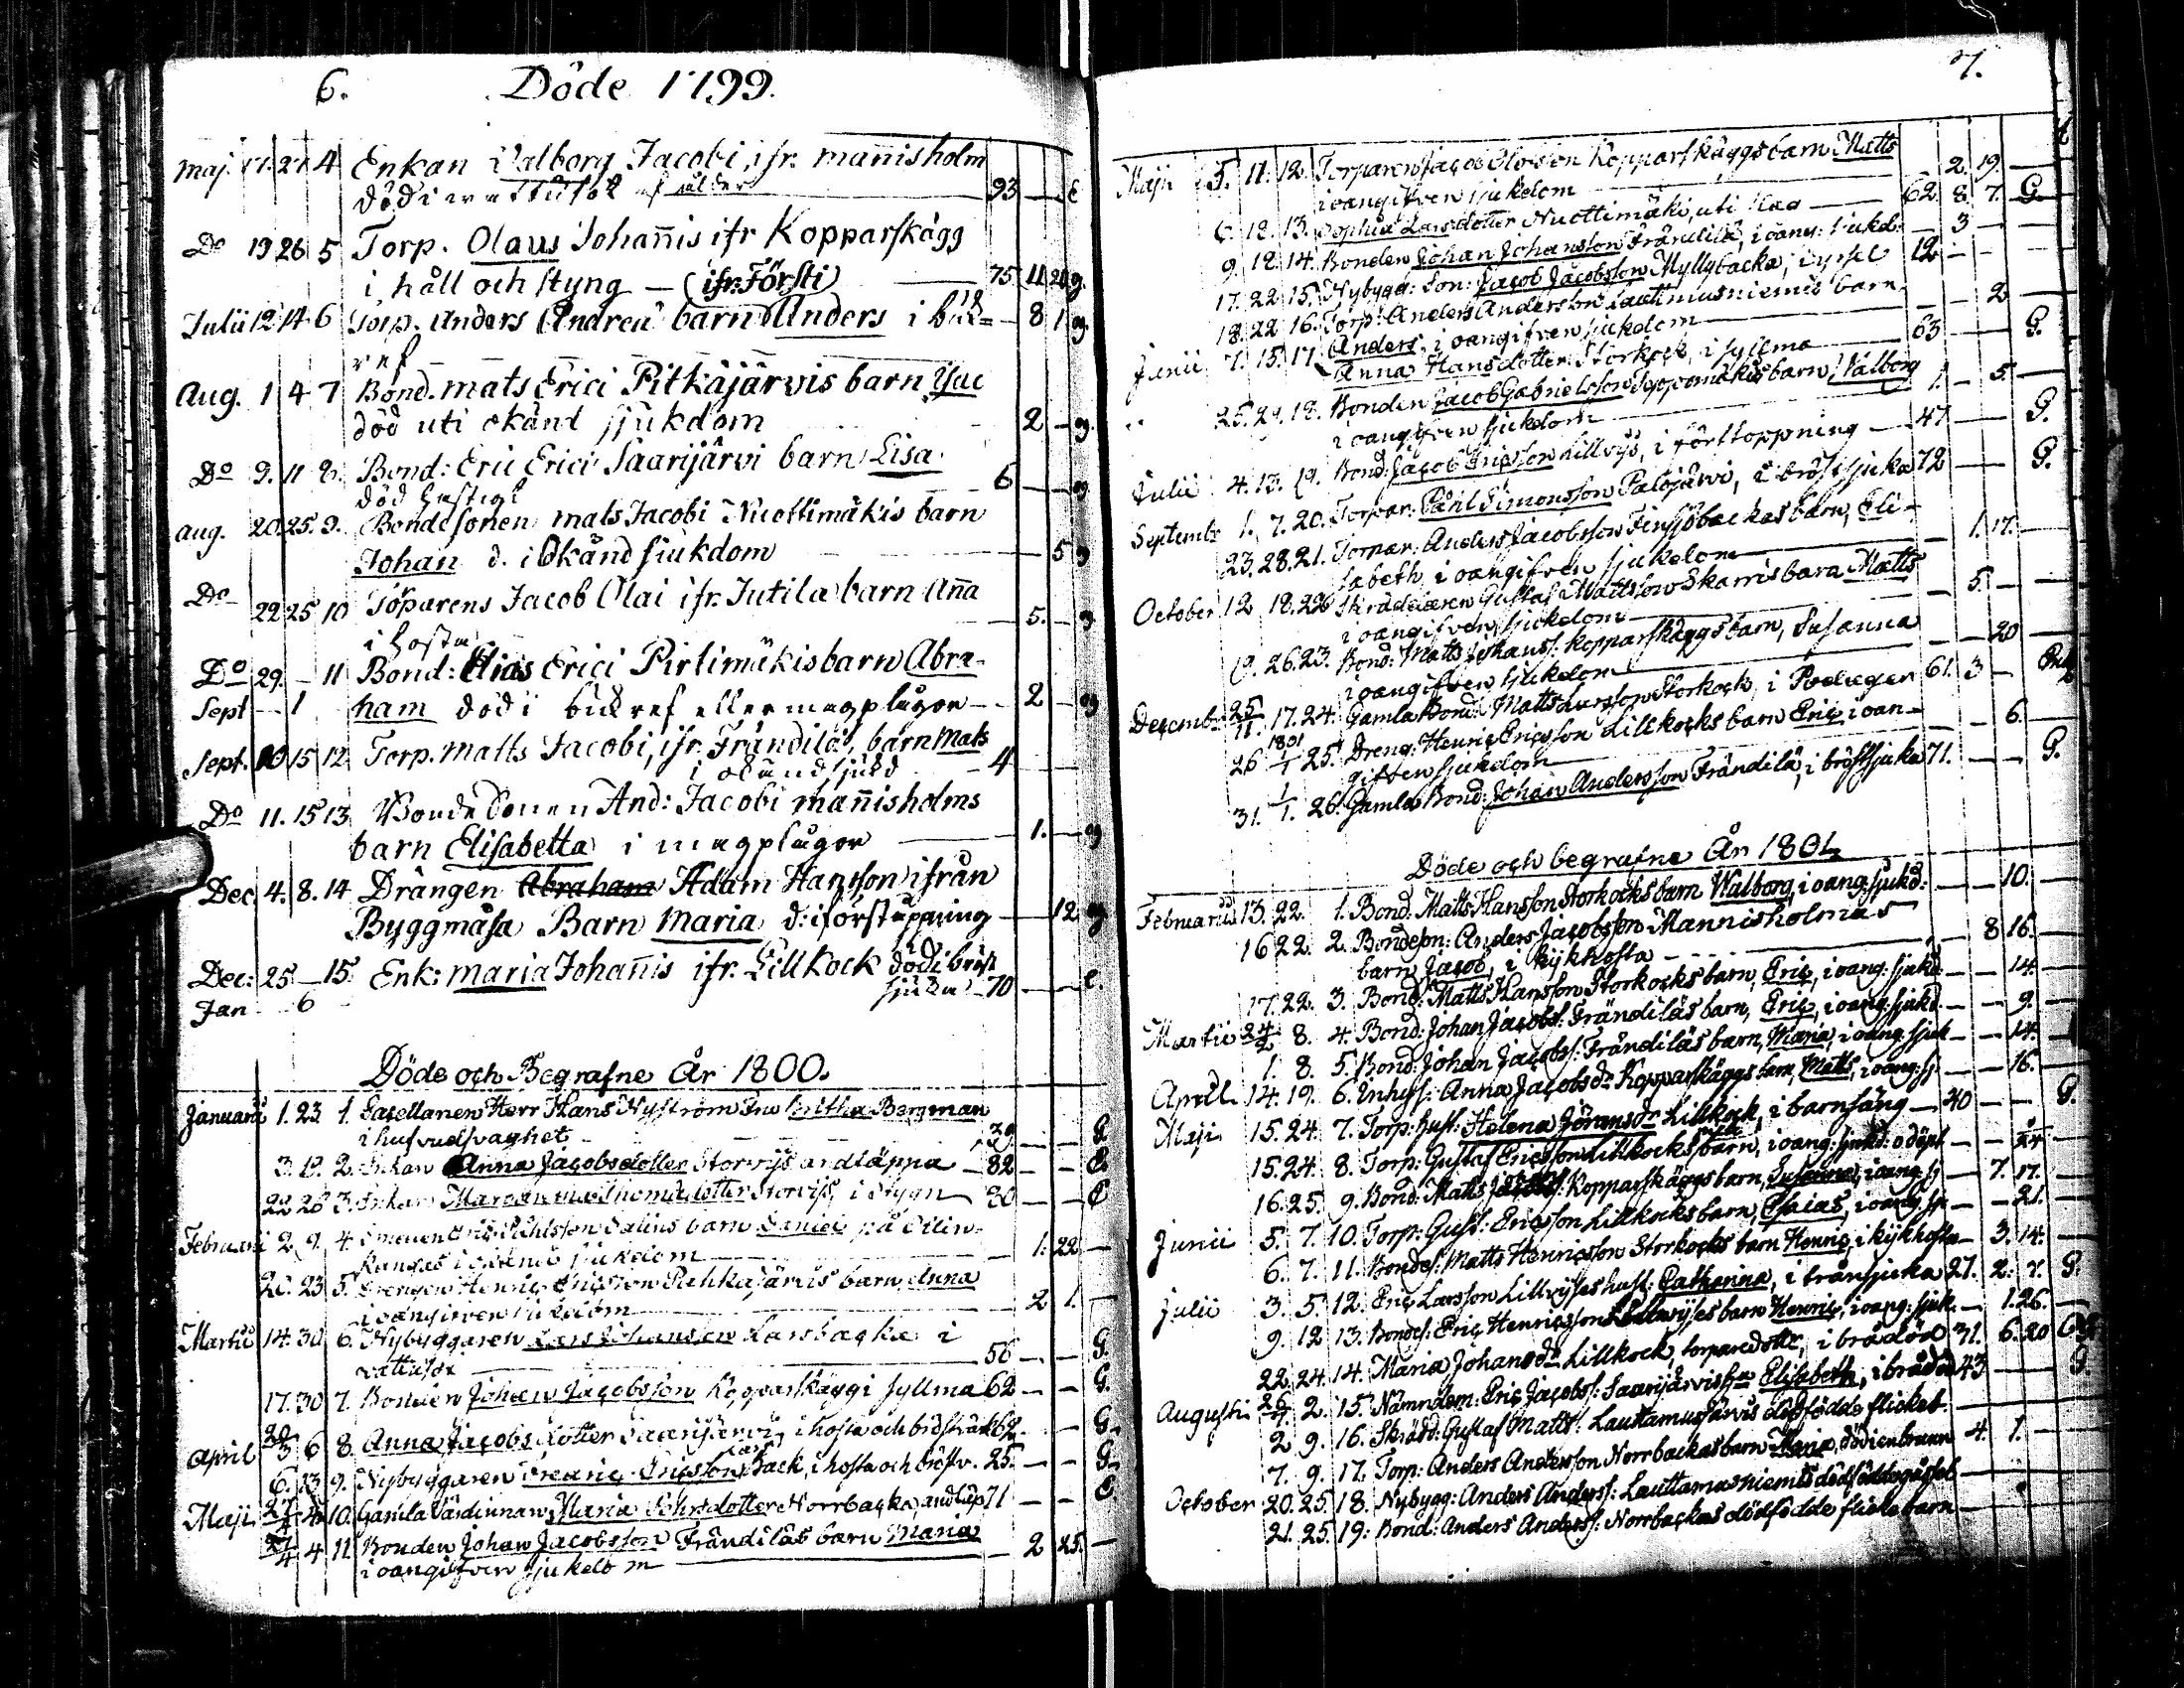 6. Döde 1799.
Maj. 17. 21 4 Enkan Valborg Jacobi, ifr. mannisholm
död i wattusot af ålder 93 — E
Do 19 26 5 Torp. Olaus Johannis ifr Kopparskägg
i håll och styng — (ifr. Försti) 75 11 20 g.
Julii 12 14 6 Torp. Anders Andreæ barn Anders i buk= — 8 1 g
ref
Aug. 1 4 7 Bond. mats Erici Pitkäjärvis barn
död uti okänd sjukdom 2 — g.
Do 9. 11 8. Bond: Eric Erici Saarijärvi barn Lisa
död hastigt 6 — g
aug. 20. 25. 9. Bondesonen mats Jacobi Nuottimäkis barn
Johan d. i Okänd siukdom 5 g
Do 22 25 10 Torparens Jacob Olai ifr. Jutila barn Anna
i hosta 5. — g
Do 29. — 11 Bond: Elias Erici Pirtimäkis barn Abra-
Sept — 1 ham död i bukref eller magplågor — 2 — g
Sept. 10 15 12 Torp. Matts Jacobi, ifr. Frändilä, barn Mats
i okänd sjukd — 4
Do 11. 15 13 Bonde Sonen And: Jacobi mannisholms
barn Elisabetta i magplågor 1. — g
Dec 4. 8. 14 Drängen Abraham Adam Hansson ifrån
Byggmäsa Barn Maria d: i förstoppning — 12 g
Dec: 25 — 15 Enk: maria Johannis ifr. Lillkock död i bröst
Jan — 6 sjuka — 70 — E.
Döde och Begrafne År 1800.
Januarii 1. 23 1. Herr Hans Nyström Fru Bergman
i hufvudsvaghet 39 — G.
3. 19. 2. Enkan Anna Jacobsdotter Storvijs andtäppa — 82 — E.
22 26 3. Enkan Thomædotter Storvijs i Stygn 80 — E
Februarii 2 9. 4. Påhlsson Salins barn Daniel på
i okänd sjukdom 1. 22 —
20. 23 5. Drengen Henric Ericsson barn Anna
i oangifven sjukdom 2 1. —
Martii 14. 30 6. Nybyggaren Lars Johansson Larsbacka i
vattusot 56 — G.
17. 30 7. Bonden Johan Jacobsson Kopparskägg i syllma 62 — G.
April 29/3 6 8. Anna Jacobsdotter Saarijärvi, i hosta och 62. — G.
6. 13 9. Nybyggaren Ericsson Back, i hosta och bröstv. 25. — G.
Maji 27/4 4 10. Gamla Värdinnan Maria Norrbacka, andtäp 71 — E
27/4 4 11 Bonden Johan Jacobsson Frändiläs barn Maria
i oangifven sjukdom 2 25. —
7.
Maji 5. 11. 12. Torparen Jacob Olofsson Kopparskäggs barn Matts
i oangifven sjukdom — 2. 19. —
6. 12. 13. Sophia Larsdotter Nuottimäki, uti 62. 8 7. G.
9. 12 14. Bonden Johan Johansson Frändilä, i oang: sjukd. — 3 —
17. 22 15. Nybygg: Son: Jacob Jacobsson Myllybacka, i 12 —
18. 22 16. Torp: Anders Andersson Lauttamusniemis barn
Anders, i oangifven sjukdom — 2
Junii 7. 15. 17. Anna Hansdotter Storkock, i syllma 63 — G.
25. 29. 18. Bonden Jacob Gabrielsson barn, Valborg
i oangifven sjukdom 1. — 5. —
Julii 4. 13. 19. Bond: Jacob Ericsson Lillvijs, i förstoppning — 47 — G.
Septembr 1. 7. 20. Torpar: Påhl Simonsson Palojärvi, i bröstsjuka 72 — G.
23. 28. 21. Torpar: Anders Jacobsson Finsjöbackas barn, Eli-
sabeth, i oangifven sjukdom — 1. 17. —
October 12 18. 22 Skräddaren Gustaf Mattsson Skarris barn Matts
i oangifven sjukdom — 5. —
19. 26. 23. Bond: Matts Johanss: kopparskäggs barn, Susanna
i oangifven sjukdom — 20
Decemb: 25/11. 17. 24. Gamla Bond: Matts Larsson Storkock, i Podager 61. 3 —
26 1801 1/1 25. Dreng: Henric Ericsson Lillkocks barn Eric, i oan-
gifven sjukdom — 6. —
31. 1/1. 26. Gamla Bond: Johan Andersson Frändilä, i bröstsjuka 71. — G.
Döde och begrafne År 1801.
Februarii 13. 22. 1. Bond: Matts Hansson Storkocks barn Walborg, i oang: sjukd: — 10. —
16 22. 2. Bondeson: Anders Jacobsson Mannisholmas
barn Jacob, i kykhosta — 8 16. —
17. 22. 3. Bond: Matts Hansson Storkocks barn, Eric, i oang: sjukd. — 14. —
Martii 24/2 8. 4. Bond: Johan Jacobs: Frändiläs barn, Eric, i oang: sjukd — 9. —
1. 8. 5. Bond: Johan Jacobss: Frändiläs barn, Maria, i oang: sjuk — 14. —
April 14. 19. 6. Inhyss: Anna Jacobsdr Kopparskäggs barn, Matts, i oang: sj — 16. —
Maji 15. 24. 7. Torp: hust: Helena Jöransdr Lillkock, i barnsäng — 40 — G.
15. 24. 8. Torp: Gustaf Ericsson Lillkocks barn, i oang: sjukd: odöpt —
16. 25. 9. Bond: Matts Kopparskäggs barn, Susanna, i oang: sj — 7. 17. —
Junii 5. 7. 10. Torp: Gust: Ericsson Lillkocks barn, Esaias, i oang: sj — 21. —
6. 7. 11. Bondes: Matts Henricsson Storkocks barn Henric, i kykhosta — 3. 14. —
Julii 3. 5. 12. Eric Larsson Lillvijses hust. Catharina, i 27. 2. 7. G.
9. 12 13. Bondes: Eric Henricsson Lillvijses barn Henric, i oang: sjuk. — 1. 26. —
22. 24. 14. Maria Johansdr Lillkock, torparedotter, i brådöd 31. 6. 20 OG
Augusti 26/7 2. 15. Nämndem: Eric Jacobss: Saarijärvis Elisabeth, i brådöd 43 — G
2 9. 16. Skrädd: Gustaf Matts: Lauttamusjärvis dödfödde flickeb. —
7. 9. 17. Torp: Anders Andersson Norrbackas barn Maria, död i en brunn 4. 1. —
October 20. 25. 18. Nybygg: Anders Anderss: Lauttamusniemis dödfödde —
21. 25. 19: Bond: Anders Anderss: Norrbackas dödfödde flicke barn —